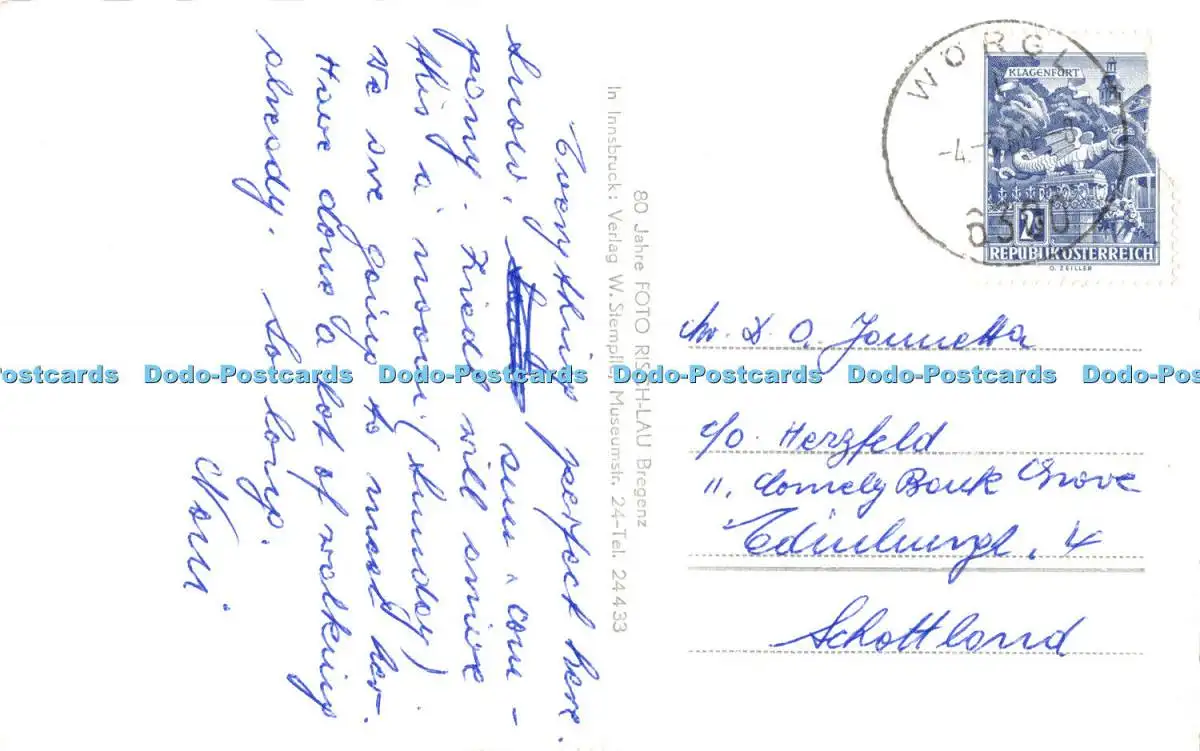 Everything perfect here.
Snow, sun, com-
pony. Friedl will arrive
this a'noon (Sunday)
We are going to meet her.
Have done a lot of walking
already. So long.
Noni
80 Jahre FOTO RISCH-LAU Bregenz
In Innsbruck: Verlag W. Stempfle, Museumstr. 24-Tel. 24 4 33
WÖRGL
-4.
6300
KLAGENFURT
2S
REPUBLIK ÖSTERREICH
O. ZEILLER
D. O. Jannetta
c/o. Herzfeld
11, Comely Bank Grove
Edinburgh, 4
Schottland
Postcards Dodo-Postcards Dodo-Postcards Dodo-Postcards Dodo-Postcards Dodo-Post